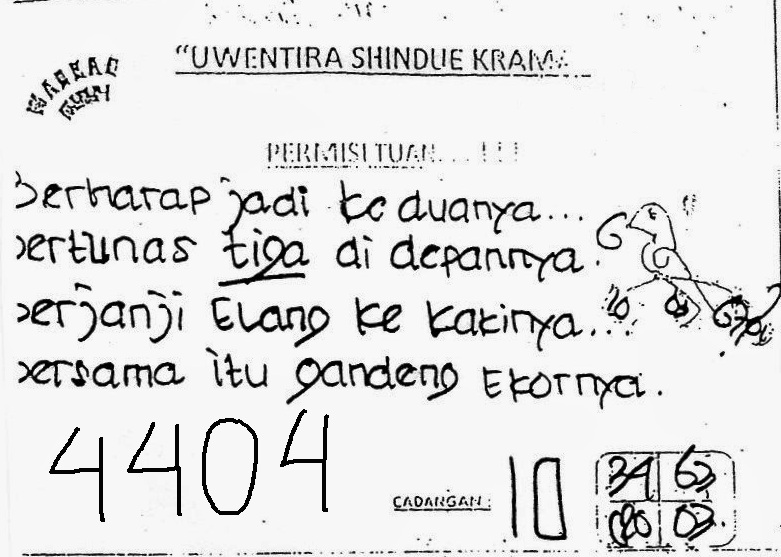 "UWENTIRA SHINDUE KRAMA
PERMISI TUAN...!!!
Berharap jadi ke duanya...
bertunas tiga di depannya.
berjanji Elang ke kakinya...
bersama itu gandeng Ekornya.
4404
CADANGAN: 10
34 63